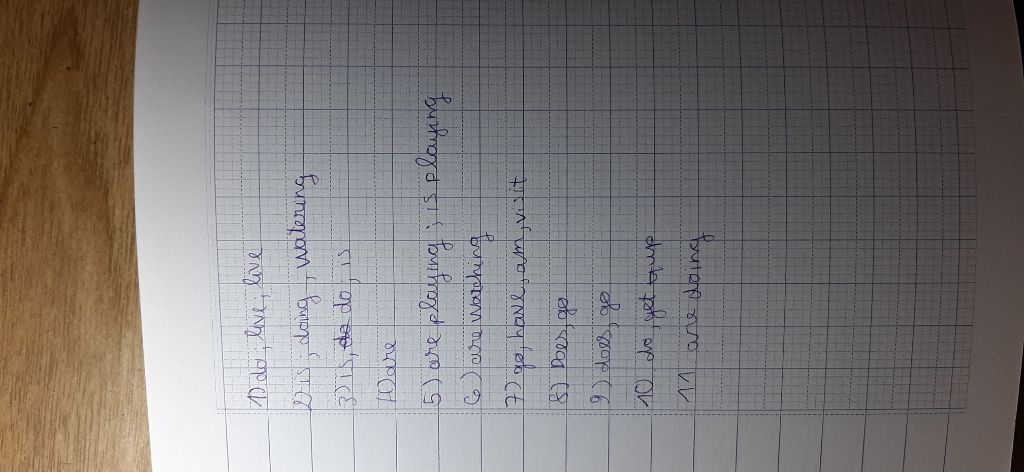 1) do, live, live
2) is, doing, watering
3) is, do, is
4) are
5) are playing; is playing
6) are watching
7) go, have, am, visit
8) Does, go
9) does, go
10 do, get up
11 are doing